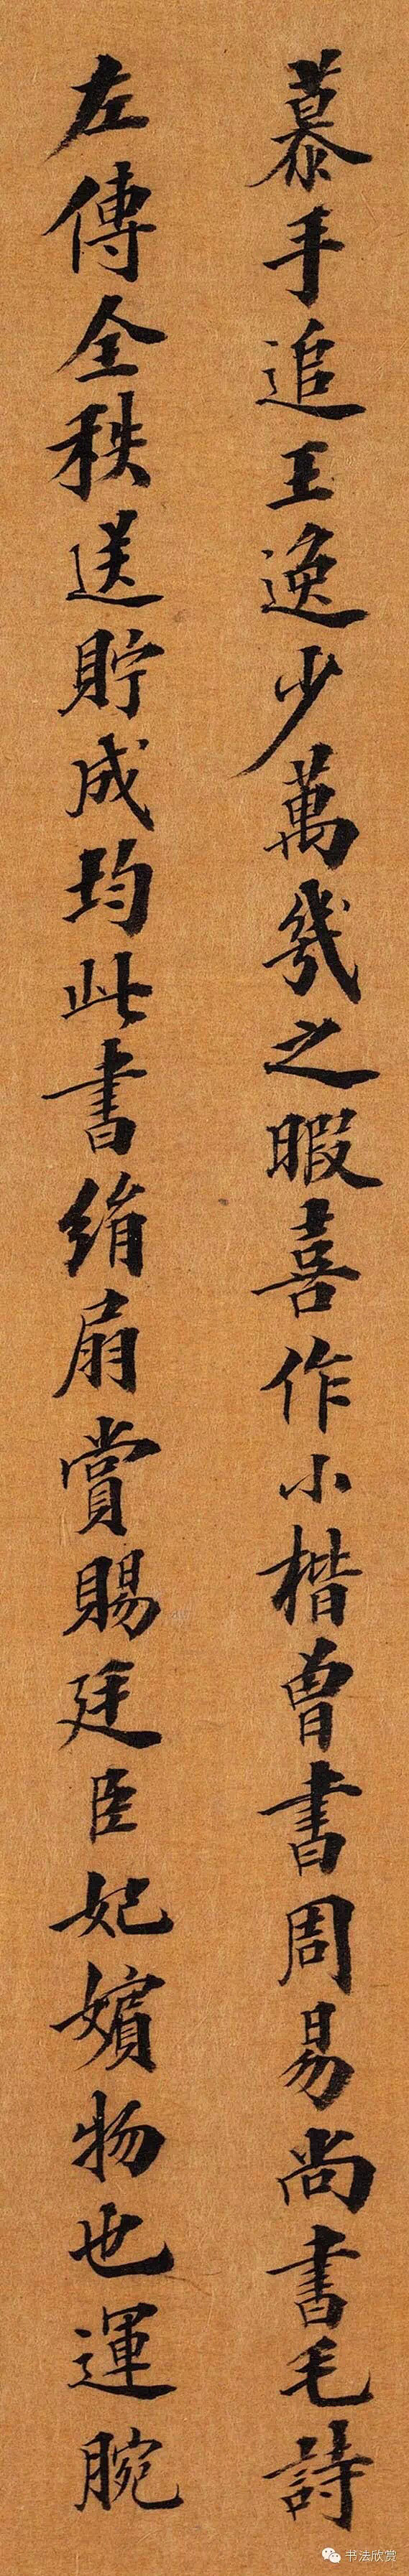 慕手追王逸少萬幾之暇喜作小楷曾書周易尚書毛詩
左傳全秩送貯成均此書絹扇賞賜廷臣妃嬪物也運腕
书法欣赏